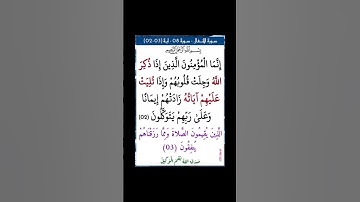 سورة الأنفال - سورة 08 - آية (03-02)
بِسْمِ اللَّهِ الرَّحْمَنِ الرَّحِيمِ
إِنَّمَا الْمُؤْمِنُونَ الَّذِينَ إِذَا ذُكِرَ
اللَّهُ وَجِلَتْ قُلُوبُهُمْ وَإِذَا تُلِيَتْ
عَلَيْهِمْ آيَاتُهُ زَادَتْهُمْ إِيمَانًا
وَعَلَىٰ رَبِّهِمْ يَتَوَكَّلُونَ (02)
الَّذِينَ يُقِيمُونَ الصَّلَاةَ وَمِمَّا رَزَقْنَاهُمْ
يُنفِقُونَ (03)